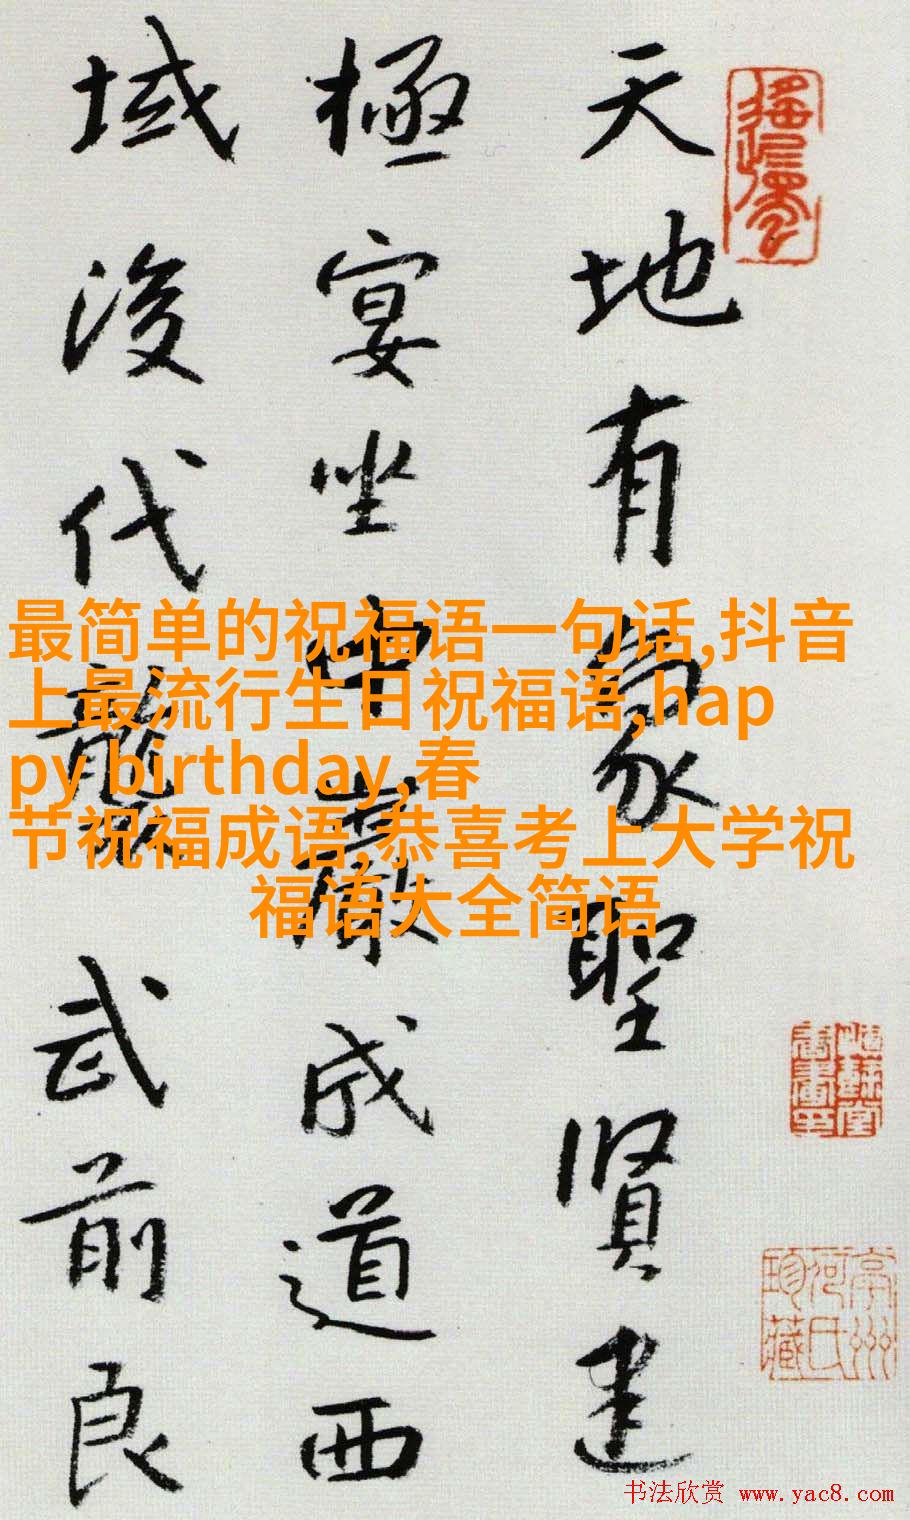 天地有象聖賢建
極宴坐中嚴成道西
域後代襲武前良
最简单的祝福语一句话,抖音
上最流行生日祝福语,hap
py birthday,春
节祝福成语,恭喜考上大学祝
福语大全简语
书法欣赏 www.yac8.com